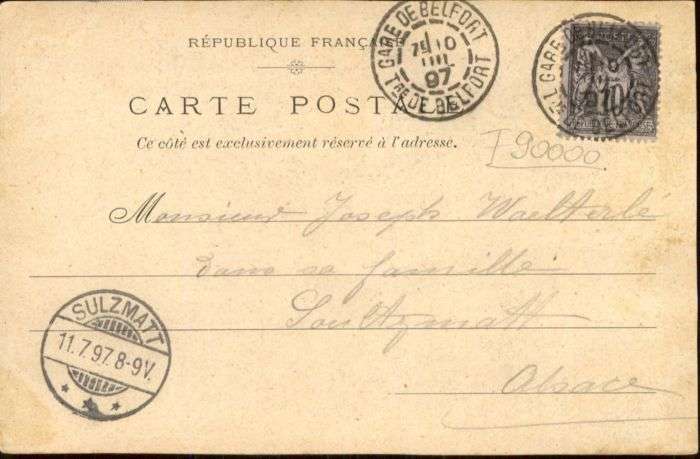 RÉPUBLIQUE FRANÇAISE
GARE DE BELFORT
10
97
Tre DE BELFORT
GARE DE BELFORT
10
CARTE POSTALE
Ce côté est exclusivement réservé à l'adresse.
T90000
Monsieur Joseph Waelterlé
dans sa famille
Soultzmatt
Alsace
SULZMATT
11.7.97.8-9V.